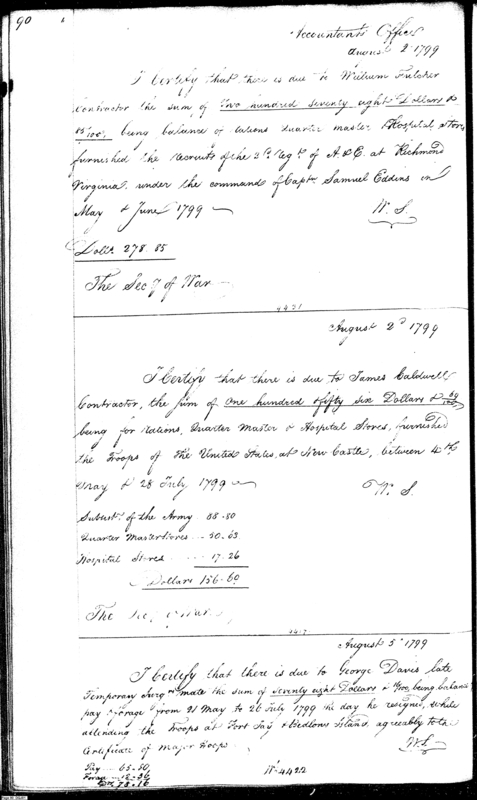 90
Accountants Office
August 2d 1799
I Certify that there is due to William Fulcher
Contractor the sum of Two hundred seventy eight Dollars &
85/100, being balance of rations Quarter master & Hospital stores
furnished the Recruits of the 2d. Regt. of A & E. at Richmond
Virginia under the command of Capt. Samuel Eddins in
May & June 1799
W. S.
Dolls. 278.85
The Secy of War
4421
August 2d 1799
I Certify that there is due to James Caldwell
Contractor, the sum of One hundred & fifty six Dollars & 69/100
being for rations, Quarter Master & Hospital Stores, furnished
the Troops of The United States, at New Castle, between 4th
May & 28 July 1799
W. S.
Subsist. of the Army 88-80
Quarter Master Stores 50-63
Hospital Stores 17-26
Dollars 156-69
The Secy of War
August 5th 1799
I Certify that there is due to George Davis late
Temporary Surgns mate the sum of seventy eight Dollars & 16/100, being balance
pay & forage from 21 May to 26 July 1799 the day he resigned, while
attending the Troops at Fort Jay & Bedlows Island, agreably to the
Certificate of Major Hoops
W. S.
Pay 65-80
Forage 12-36
Dlls 78-16
No. 4422